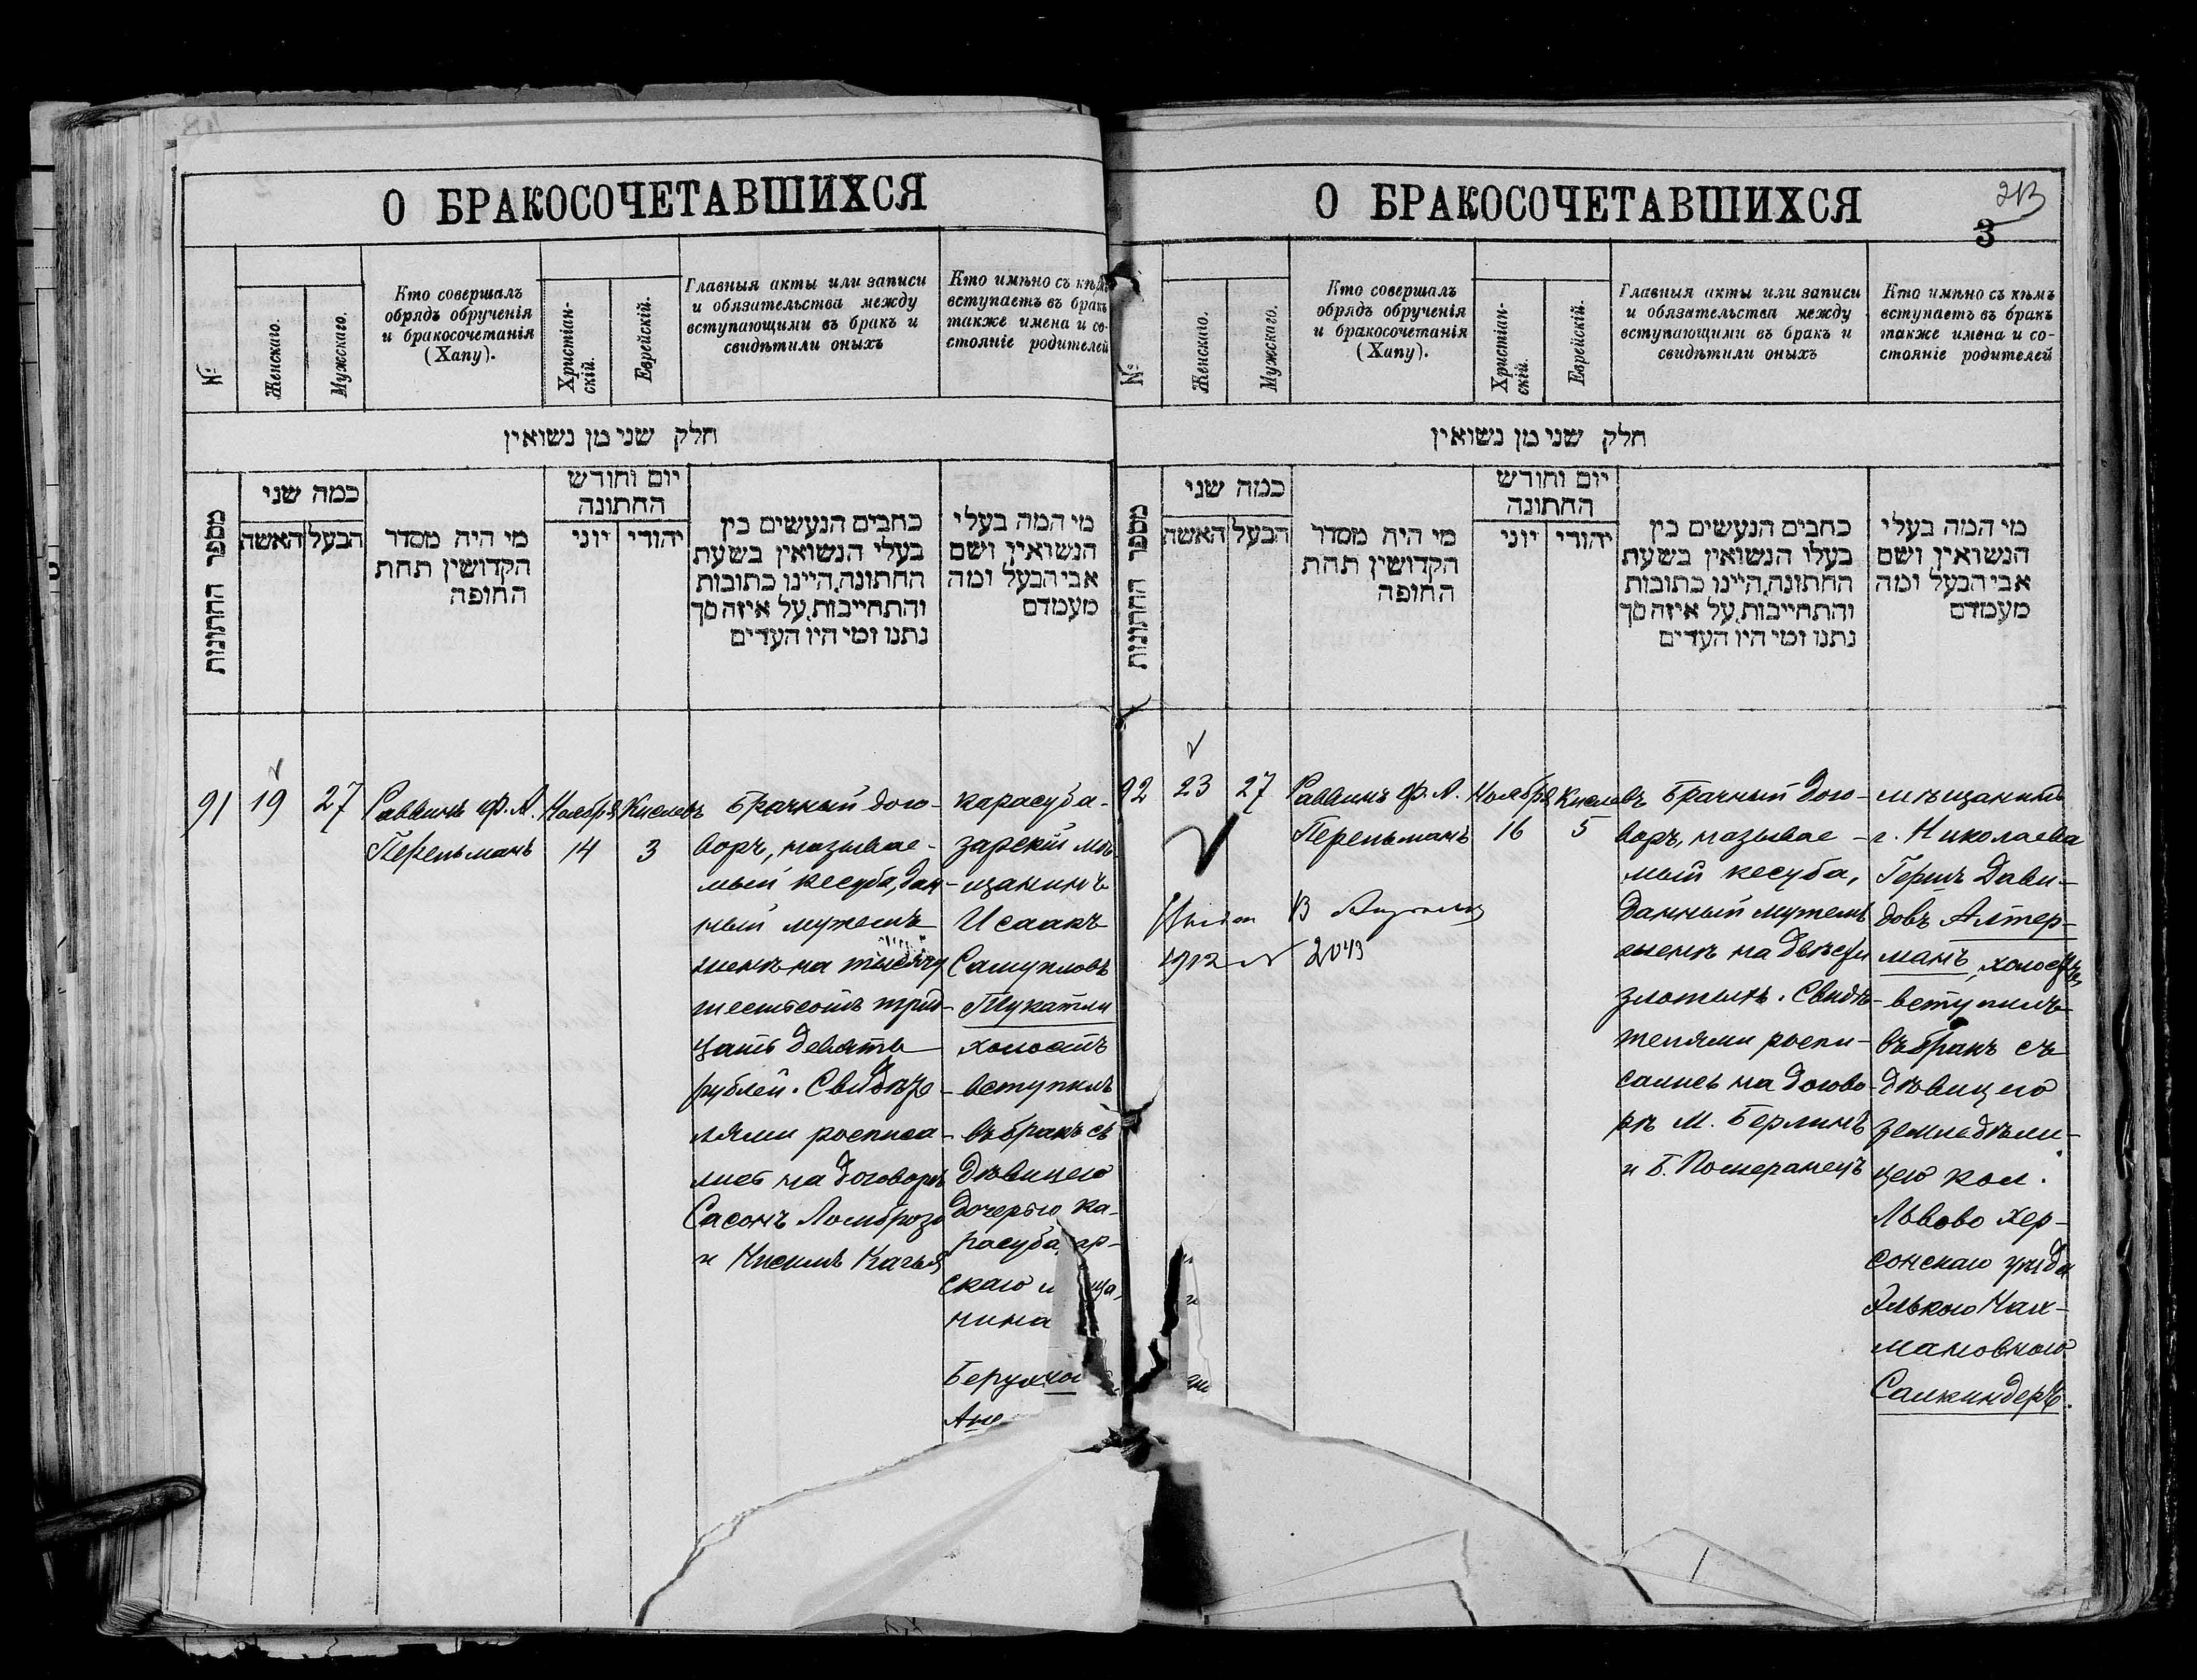 О БРАКОСОЧЕТАВШИХСЯ
№
Женскаго.
Мужскаго.
Кто совершалъ
обрядъ обрученія
и бракосочетанія
(Хапу).
Христіан-
скій.
Еврейскій.
Главныя акты или записи
и обязательства между
вступающими въ бракъ и
свидѣтили оныхъ
Кто имѣно съ кѣмъ
вступаетъ въ бракъ
также имена и со-
стояніе родителей
חלק שני מן נשואין
מספר החתונות
כמה שני
האשה
הבעל
מי היה מסדר
הקדושין תחת
החופה
יום וחודש
החתונה
יוני
יהודי
כתבים הנעשים בין
בעלי הנשואין בשעת
החתונה, היינו כתובות
והתחייבות, על איזה סך
נתנו ומי היו העדים
מי המה בעלי
הנשואין ושם
אבי הבעל ומה
מעמדם
91
19
27
Раввинъ Ф. А.
Перельманъ
Ноября
14
Кислевъ
3
Брачный дого-
воръ, называе-
мый кесуба, дан-
ный мужемъ
женѣ на тысячу
шестьсотъ трид-
цать девять
рублей. Свидѣте-
лями росписа-
лись на договорѣ
Сасонъ Ломброзо
и Нисимъ
карасуба-
зарскій мѣ-
щанинъ
Исаакъ
Самуиловъ
холостъ
вступилъ
въ бракъ съ
дѣвицею
дочерью ка-
расубазар-
скаго
нина
О БРАКОСОЧЕТАВШИХСЯ
213
3
№
Женскаго.
Мужскаго.
Кто совершалъ
обрядъ обрученія
и бракосочетанія
(Хапу).
Христіан-
скій.
Еврейскій.
Главныя акты или записи
и обязательства между
вступающими въ бракъ и
свидѣтили оныхъ
Кто имѣно съ кѣмъ
вступаетъ въ бракъ
также имена и со-
стояніе родителей
חלק שני מן נשואין
מספר החתונות
כמה שני
האשה
הבעל
מי היה מסדר
הקדושין תחת
החופה
יום וחודש
החתונה
יוני
יהודי
כתבים הנעשים בין
בעלי הנשואין בשעת
החתונה, היינו כתובות
והתחייבות, על איזה סך
נתנו ומי היו העדים
מי המה בעלי
הנשואין ושם
אבי הבעל ומה
מעמדם
92
23
27
Раввинъ Ф. А.
Перельманъ
Ноября
16
Кислевъ
5
13 Августа
1912 № 2043
Брачный дого-
воръ, называе-
мый кесуба,
данный мужемъ
женѣ на двѣсти
злотыхъ. Свидѣ-
телями роспи-
сались на догово-
рѣ М. Берлинъ
и Б. Померанецъ
мѣщанинъ
г. Николаева
Гершъ Дави-
довъ Алтер-
манъ, холостъ
вступилъ
въ бракъ съ
дѣвицею
земледѣли-
цею кол.
Львово Хер-
сонскаго уѣзда
Элькою Нах-
мановною
Салкиндеръ.